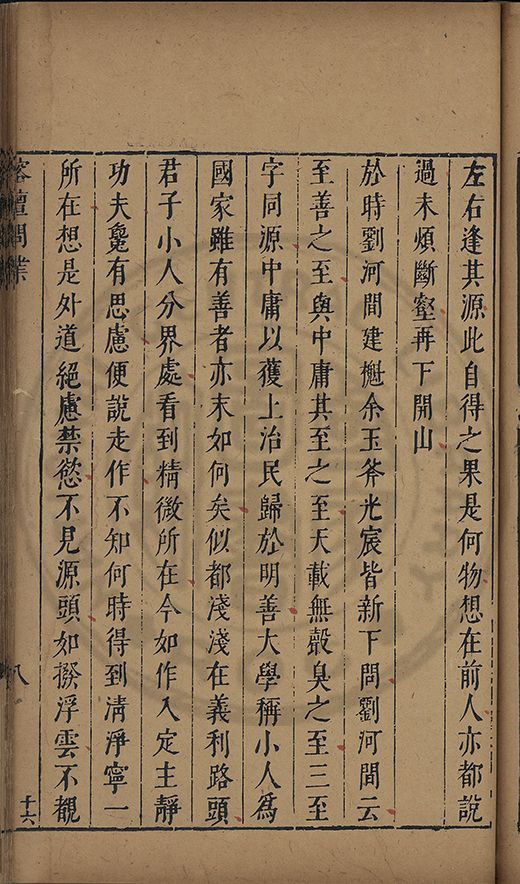 左右逢其源此自得之果是何物想在前人亦都說
過未煩斷壑再下開山
於時劉河間建櫆余玉斧光宸皆新下問劉河間云
至善之至與中庸其至之至天載無聲臭之至三至
字同源中庸以獲上治民歸於明善大學稱小人為
國家雖有善者亦末如何矣似都淺淺在義利路頭
君子小人分界處看到精微所在今如作入定主靜
功夫毚有思慮便說走作不知何時得到清淨寧一
所在想是外道絕慮禁慾不見源頭如撥浮雲不覩
榕壇問業
八
十六